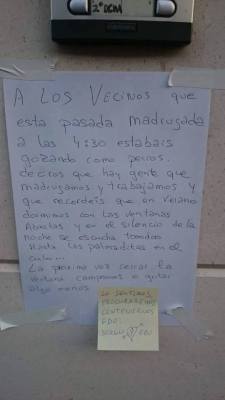 2º DCHA
A LOS VECINOS que
esta pasada madrugada
a las 4:30 estabais
gozando como perros.
deciros que hay gente que
madrugamos y trabajamos y
que recordeis que en verano
dormimos con las ventanas
Abiertas y en el silencio de la
noche se escucha tambien
Hasta las palmaditas en el
culo...
La próxima vez cerrar la
ventana campeones o gritar
algo menos
LO SENTIMOS
PROCURAREMOS
CONTENERNOS
FDO: